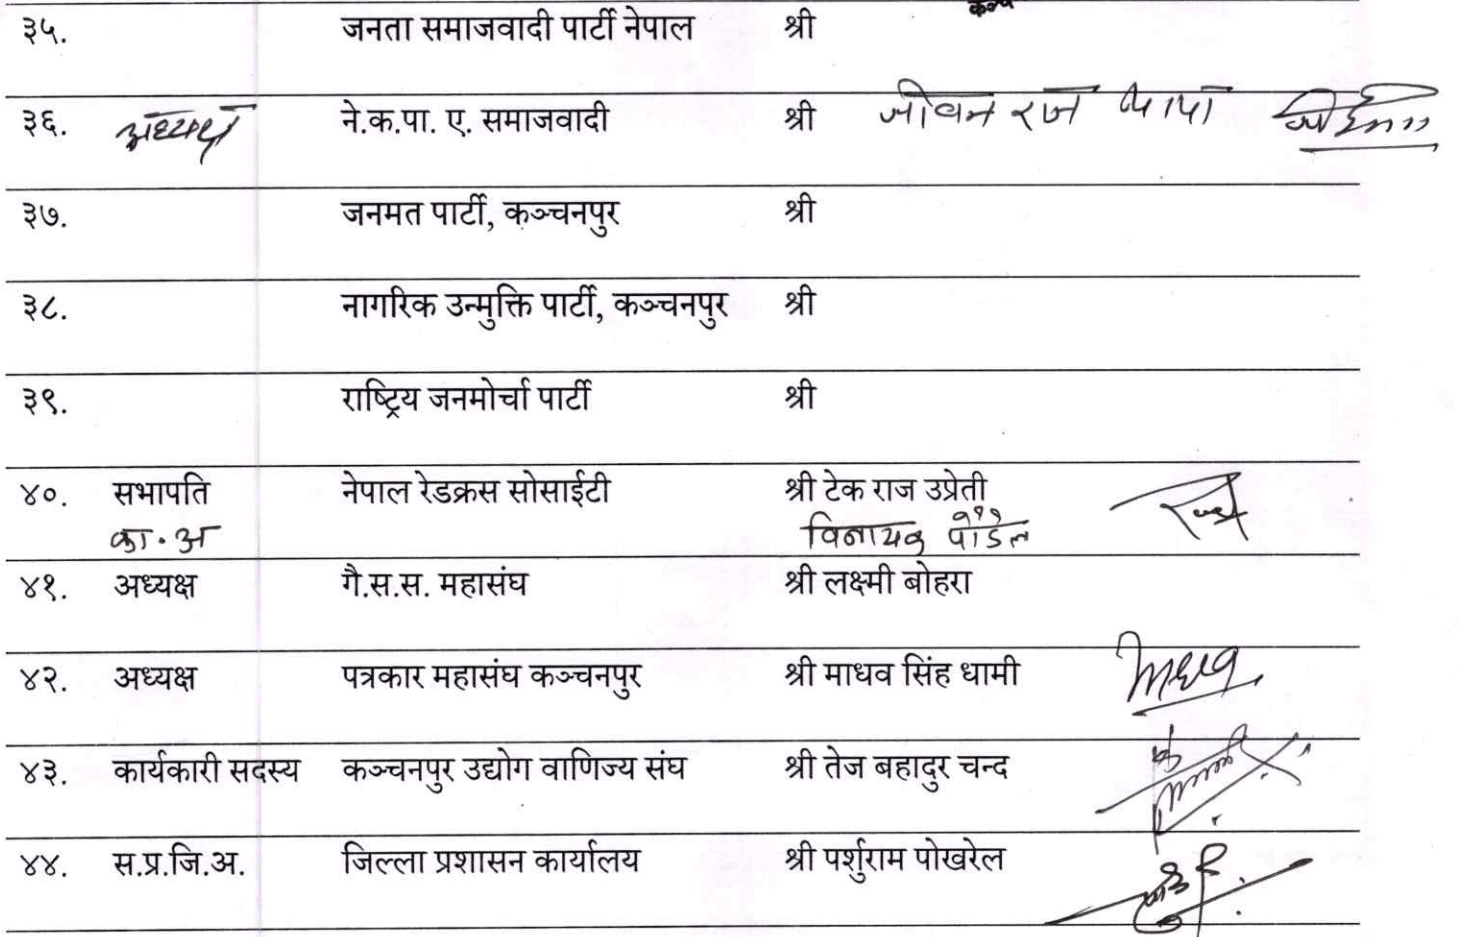 ३५. जनता समाजवादी पार्टी नेपाल श्री
३६. अध्यक्ष ने.क.पा. ए. समाजवादी श्री जीवन राज थापा
३७. जनमत पार्टी, कञ्चनपुर श्री
३८. नागरिक उन्मुक्ति पार्टी, कञ्चनपुर श्री
३९. राष्ट्रिय जनमोर्चा पार्टी श्री
४०. सभापति नेपाल रेडक्रस सोसाईटी श्री टेक राज उप्रेती
का.अ विनायक पौडेल
४१. अध्यक्ष गै.स.स. महासंघ श्री लक्ष्मी बोहरा
४२. अध्यक्ष पत्रकार महासंघ कञ्चनपुर श्री माधव सिंह धामी माधव
४३. कार्यकारी सदस्य कञ्चनपुर उद्योग वाणिज्य संघ श्री तेज बहादुर चन्द
४४. स.प्र.जि.अ. जिल्ला प्रशासन कार्यालय श्री पर्शुराम पोखरेल